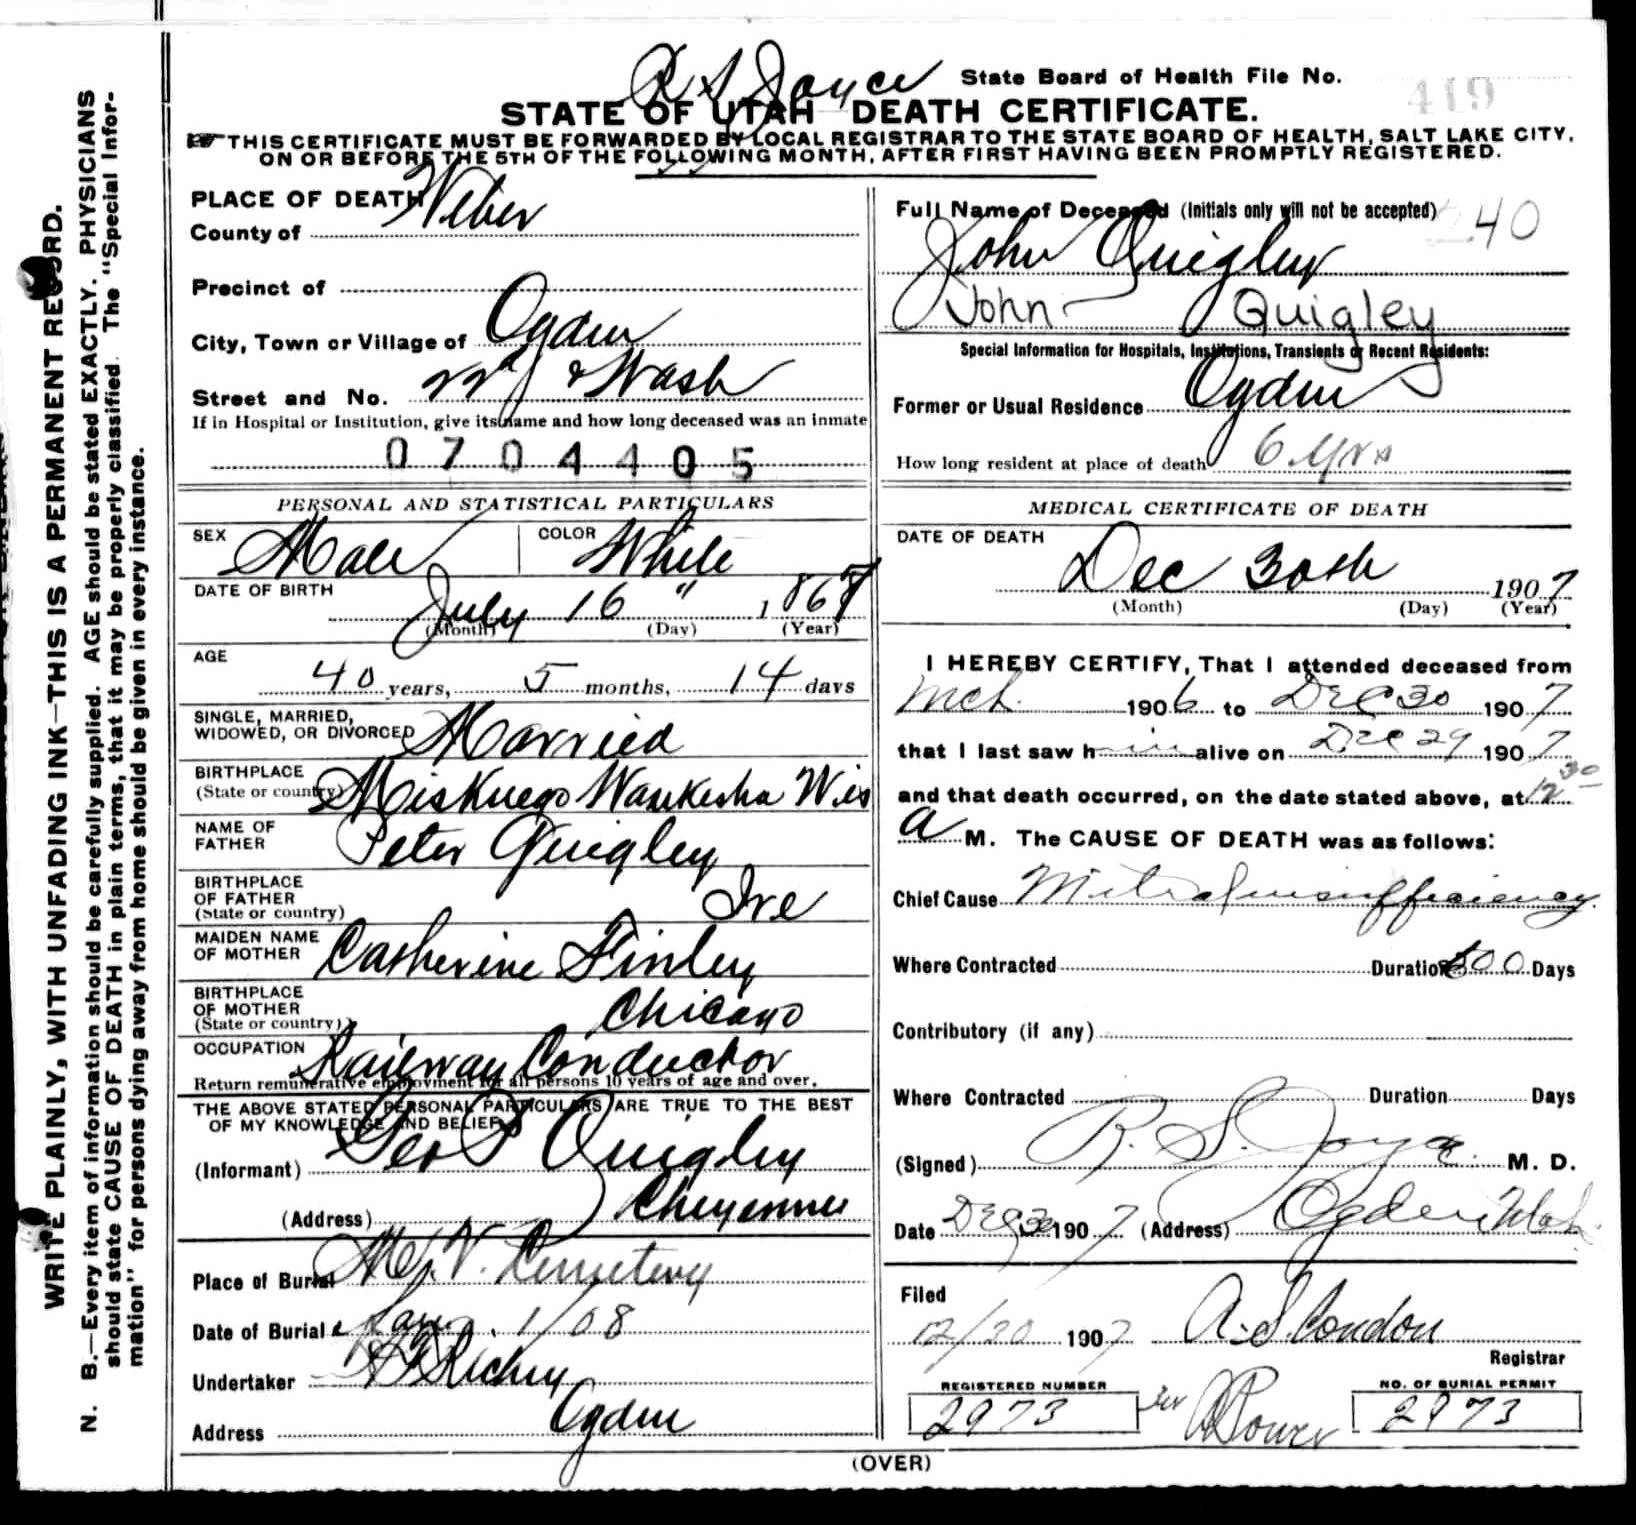 R S Joyce State Board of Health File No. 419
STATE OF UTAH DEATH CERTIFICATE.
THIS CERTIFICATE MUST BE FORWARDED BY LOCAL REGISTRAR TO THE STATE BOARD OF HEALTH, SALT LAKE CITY,
ON OR BEFORE THE 5TH OF THE FOLLOWING MONTH, AFTER FIRST HAVING BEEN PROMPTLY REGISTERED.
WRITE PLAINLY, WITH UNFADING INK—THIS IS A PERMANENT RECORD.
N. B.—Every item of information should be carefully supplied. AGE should be stated EXACTLY. PHYSICIANS
should state CAUSE OF DEATH in plain terms, that it may be properly classified. The "Special Infor-
mation" for persons dying away from home should be given in every instance.
PLACE OF DEATH
County of Weber
Precinct of
City, Town or Village of Ogden
Street and No. & Wash
If in Hospital or Institution, give its name and how long deceased was an inmate
0 7 0 4 4 0 5
PERSONAL AND STATISTICAL PARTICULARS
SEX Male COLOR White
DATE OF BIRTH
July 16 " 1867
(Month) (Day) (Year)
AGE
40 years, 5 months, 14 days
SINGLE, MARRIED,
WIDOWED, OR DIVORCED Married
BIRTHPLACE
(State or country) Miskuego Waukesha Wis
NAME OF
FATHER Peter Quigley
BIRTHPLACE
OF FATHER
(State or country) Ire
MAIDEN NAME
OF MOTHER Catherine Finley
BIRTHPLACE
OF MOTHER
(State or country) Chicago
OCCUPATION Railway Conductor
Return remunerative employment for all persons 10 years of age and over.
THE ABOVE STATED PERSONAL PARTICULARS ARE TRUE TO THE BEST
OF MY KNOWLEDGE AND BELIEF
(Informant) Geo P Quigley
(Address) Cheyenne
Place of Burial Mt. V. Cemetery
Date of Burial Jan. 1/08
Undertaker Richey
Address Ogden
Full Name of Deceased (Initials only will not be accepted) 40
John Quigley
John Quigley
Special Information for Hospitals, Institutions, Transients or Recent Residents:
Former or Usual Residence Ogden
How long resident at place of death 6 yrs
MEDICAL CERTIFICATE OF DEATH
DATE OF DEATH
Dec 30th 1907
(Month) (Day) (Year)
I HEREBY CERTIFY, That I attended deceased from
Mch. 1906 to Dec 30 1907
that I last saw him alive on Dec 29 1907
and that death occurred, on the date stated above, at 12 30
a M. The CAUSE OF DEATH was as follows:
Chief Cause Mitral insufficiency
Where Contracted Duration 500 Days
Contributory (if any)
Where Contracted Duration Days
(Signed) R. S. Joyce M. D.
Date Dec 30 1907 (Address) Ogden Utah
Filed
12/30 1907 A. S. Condon
Registrar
REGISTERED NUMBER NO. OF BURIAL PERMIT
2973 2973
(OVER)